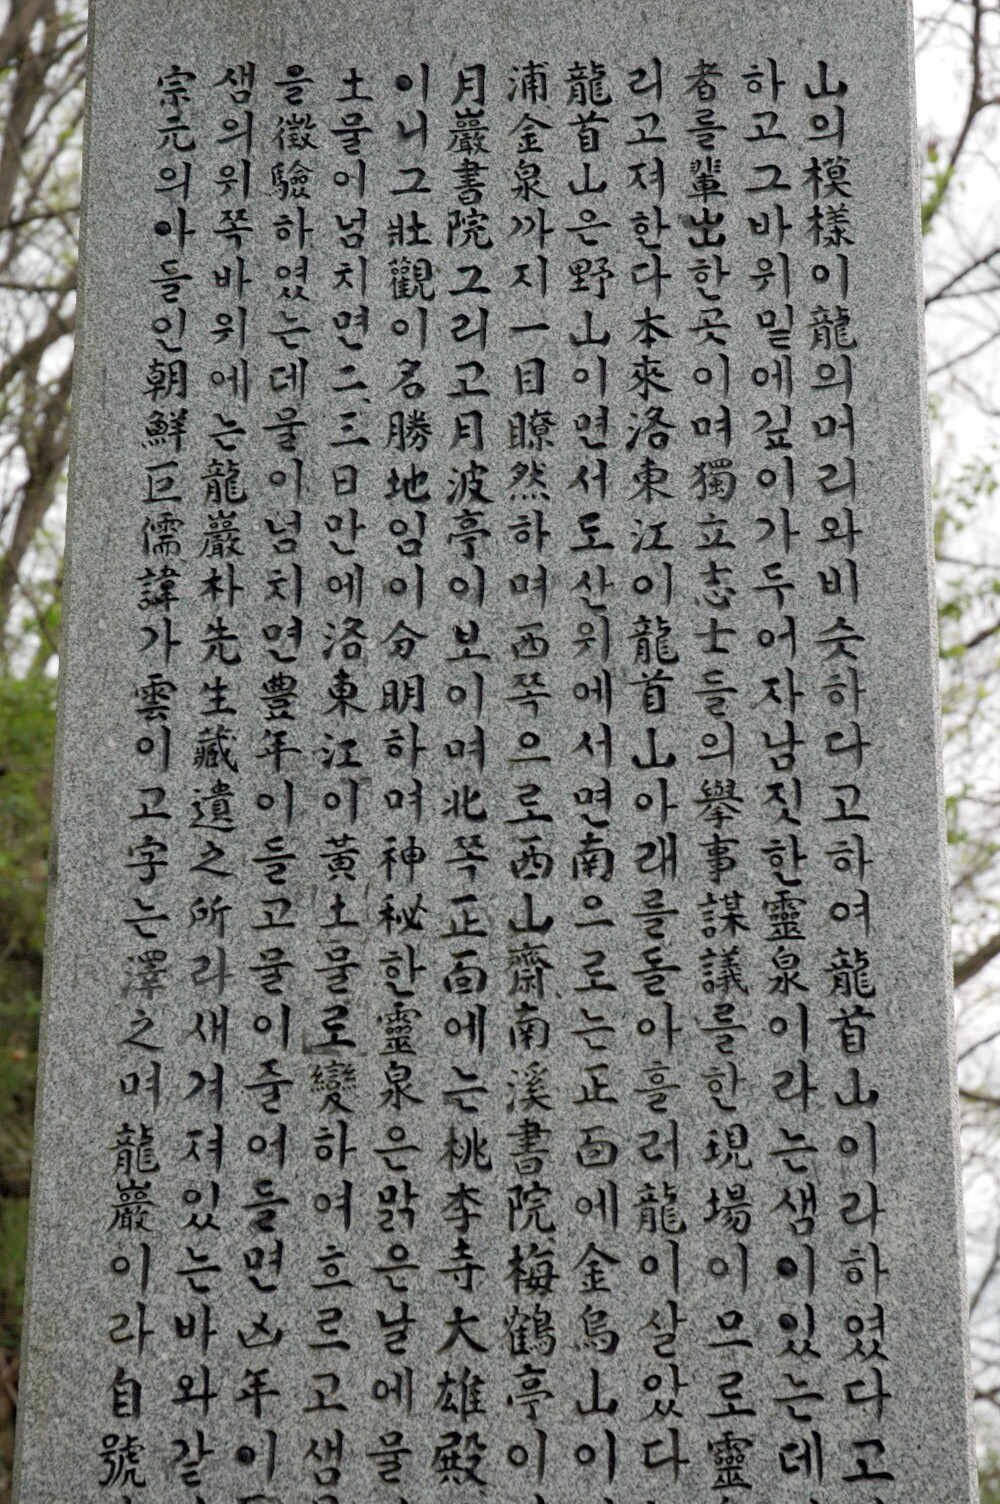 山의模樣이龍의머리와비슷하다고하여龍首山이라하였다고
하고그바위밑에깊이가두어자남짓한靈泉이라는샘이있는데
者를輩出한곳이며獨立志士들의擧事謀議를한現場이므로靈
리고져한다本來洛東江이龍首山아래를돌아흘러龍이살았다
龍首山은野山이면서도산위에서면南으로는正面에金烏山이
浦金泉까지一目瞭然하며西쪽으로西山齋南溪書院梅鶴亭이
月巖書院그리고月波亭이보이며北쪽正面에는桃李寺大雄殿
이니그壯觀이名勝地임이分明하며神秘한靈泉은맑은날에물
土물이넘치면二、三日만에洛東江이黃土물로變하여흐르고샘
을徵驗하였는데물이넘치면豊年이들고물이줄어들면凶年이
샘의위쪽바위에는龍巖朴先生藏遺之所라새겨져있는바와같
宗元의아들인朝鮮巨儒諱가雲이고字는澤之며龍巖이라自號